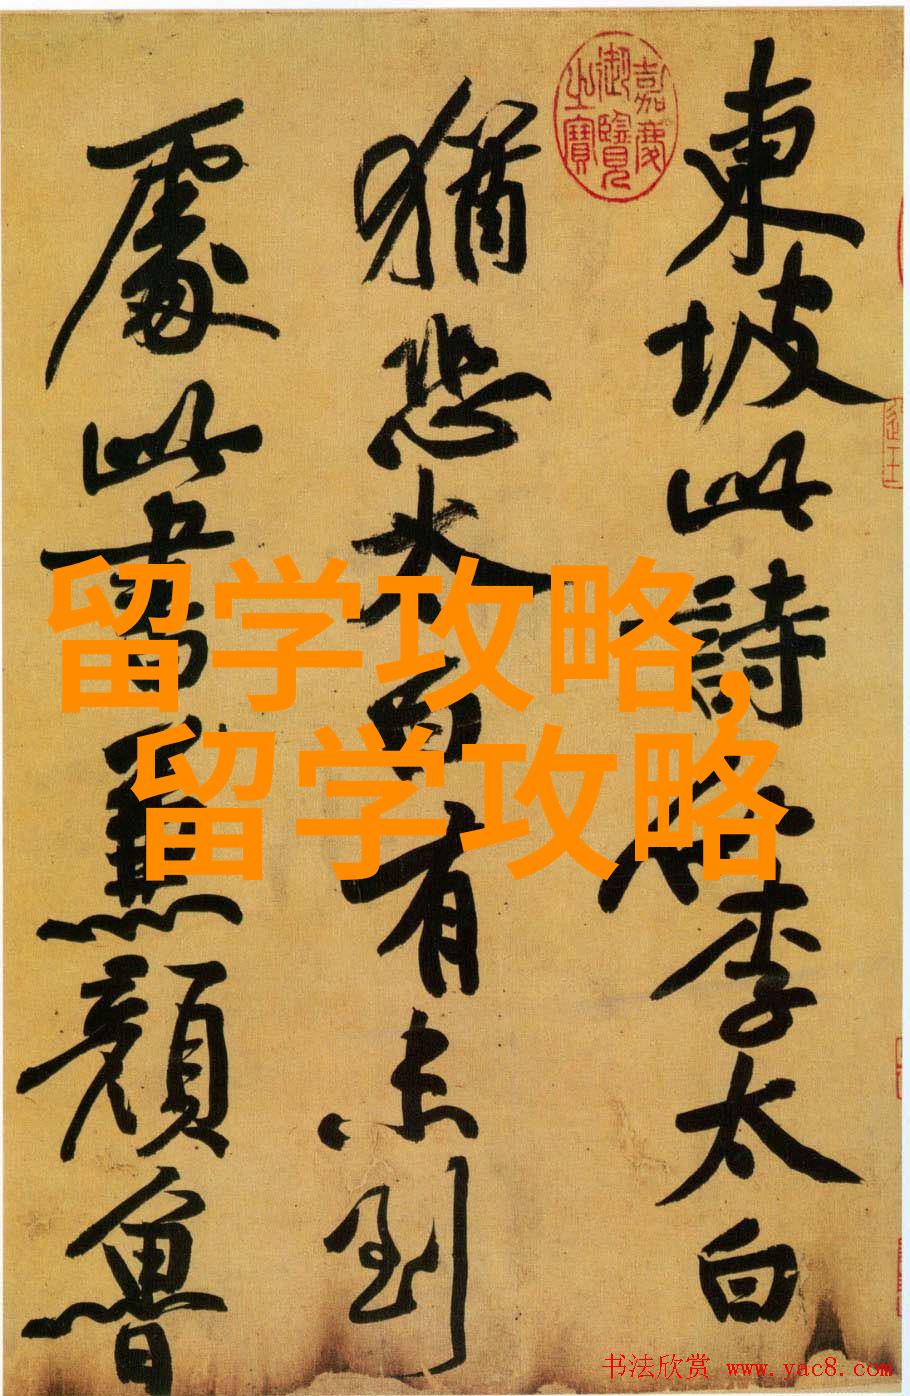 東坡此詩似李太白
猶恐太白有未到
處此書兼顏魯
嘉慶御覽之寶
留学攻略,
留学攻略
书法欣赏 www.yac8.com